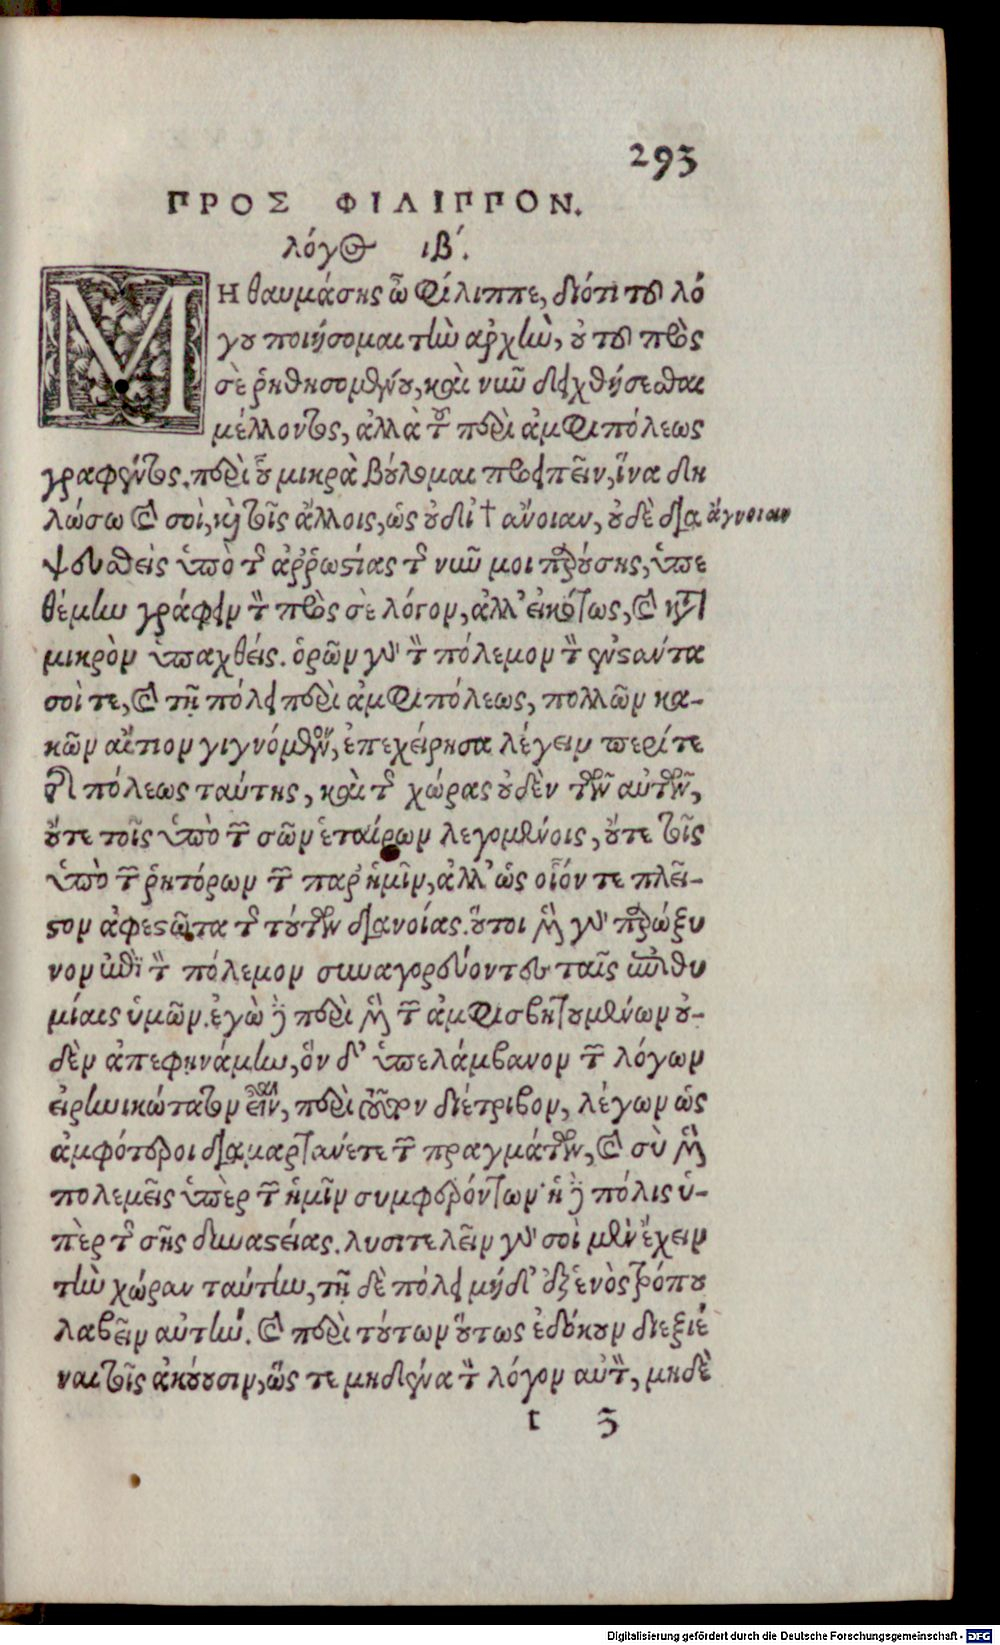 293
ΠΡΟΣ ΦΙΛΙΠΠΟΝ.
λόγος ιβ΄.
ΜΗ θαυμάσῃς ὦ Φίλιππε, διότι τοῦ λό
γου ποιήσομαι τὴν ἀρχὴν, οὐ τοῦ πρὸς
σὲ ῥηθησομένου, καὶ νῦν δειχθήσεσθαι
μέλλοντος, ἀλλὰ τοῦ περὶ ἀμφιπόλεως
γραφέντος. περὶ οὗ μικρὰ βούλομαι προειπεῖν, ἵνα δη
λώσω καὶ σοὶ, καὶ τοῖς ἄλλοις, ὡς οὐ δι' † ἄνοιαν, οὐδὲ δια
ἄγνοιαν
ψευσθεὶς ὑπὸ τῆς ἀῤῥωστίας τῆς νῦν μοι παρούσης, ὑπε
θέμην γράφειν τὸν πρὸς σὲ λόγον, ἀλλ' εἰκότως, καὶ κατὰ
μικρὸν ὑπαχθείς. ὁρῶν γὰρ τὸν πόλεμον τὸν ἐνστάντα
σοί τε, καὶ τῇ πόλει περὶ ἀμφιπόλεως, πολλῶν κα-
κῶν αἴτιον γιγνόμενον, ἐπεχείρησα λέγειν περί τε
τῆς πόλεως ταύτης, καὶ τῆς χώρας οὐδὲν τῶν αὐτῶν,
οὔτε τοῖς ὑπὸ τῶν σῶν ἑταίρων λεγομένοις, οὔτε τοῖς
ὑπὸ τῶν ῥητόρων τῶν παρ' ἡμῖν, ἀλλ' ὡς οἷόν τε πλεῖ-
στον ἀφεστῶτα τῆς τούτων διανοίας. οὗτοι μὲν γὰρ παρώξυ
νον ἐπὶ τὸν πόλεμον συναγορεύοντες ταῖς ἐπιθυ
μίαις ὑμῶν. ἐγὼ δὲ περὶ μὲν τῶν ἀμφισβητουμένων οὐ-
δὲν ἀπεφηνάμην, ὃν δ' ὑπελάμβανον τῶν λόγων
εἰρηνικώτατον εἶναι, περὶ τοῦτον διέτριβον, λέγων ὡς
ἀμφότεροι διαμαρτάνετε τῶν πραγμάτων, καὶ σὺ μὲν
πολεμεῖς ὑπὲρ τῶν ἡμῖν συμφερόντων· ἡ δὲ πόλις ὑ-
πὲρ τῆς σῆς δυναστείας. λυσιτελεῖν γὰρ σοὶ μὲν ἔχειν
τὴν χώραν ταύτην, τῇ δὲ πόλει μήδ' ἐξ ἑνὸς τρόπου
λαβεῖν αὐτήν. καὶ περὶ τούτων οὕτως ἐδόκουν διεξιέ
ναι τοῖς ἀκούουσιν, ὥς τε μηδένα τὸν λόγον αὐτῶν, μηδὲ
t 3
Digitalisierung gefördert durch die Deutsche Forschungsgemeinschaft - DFG